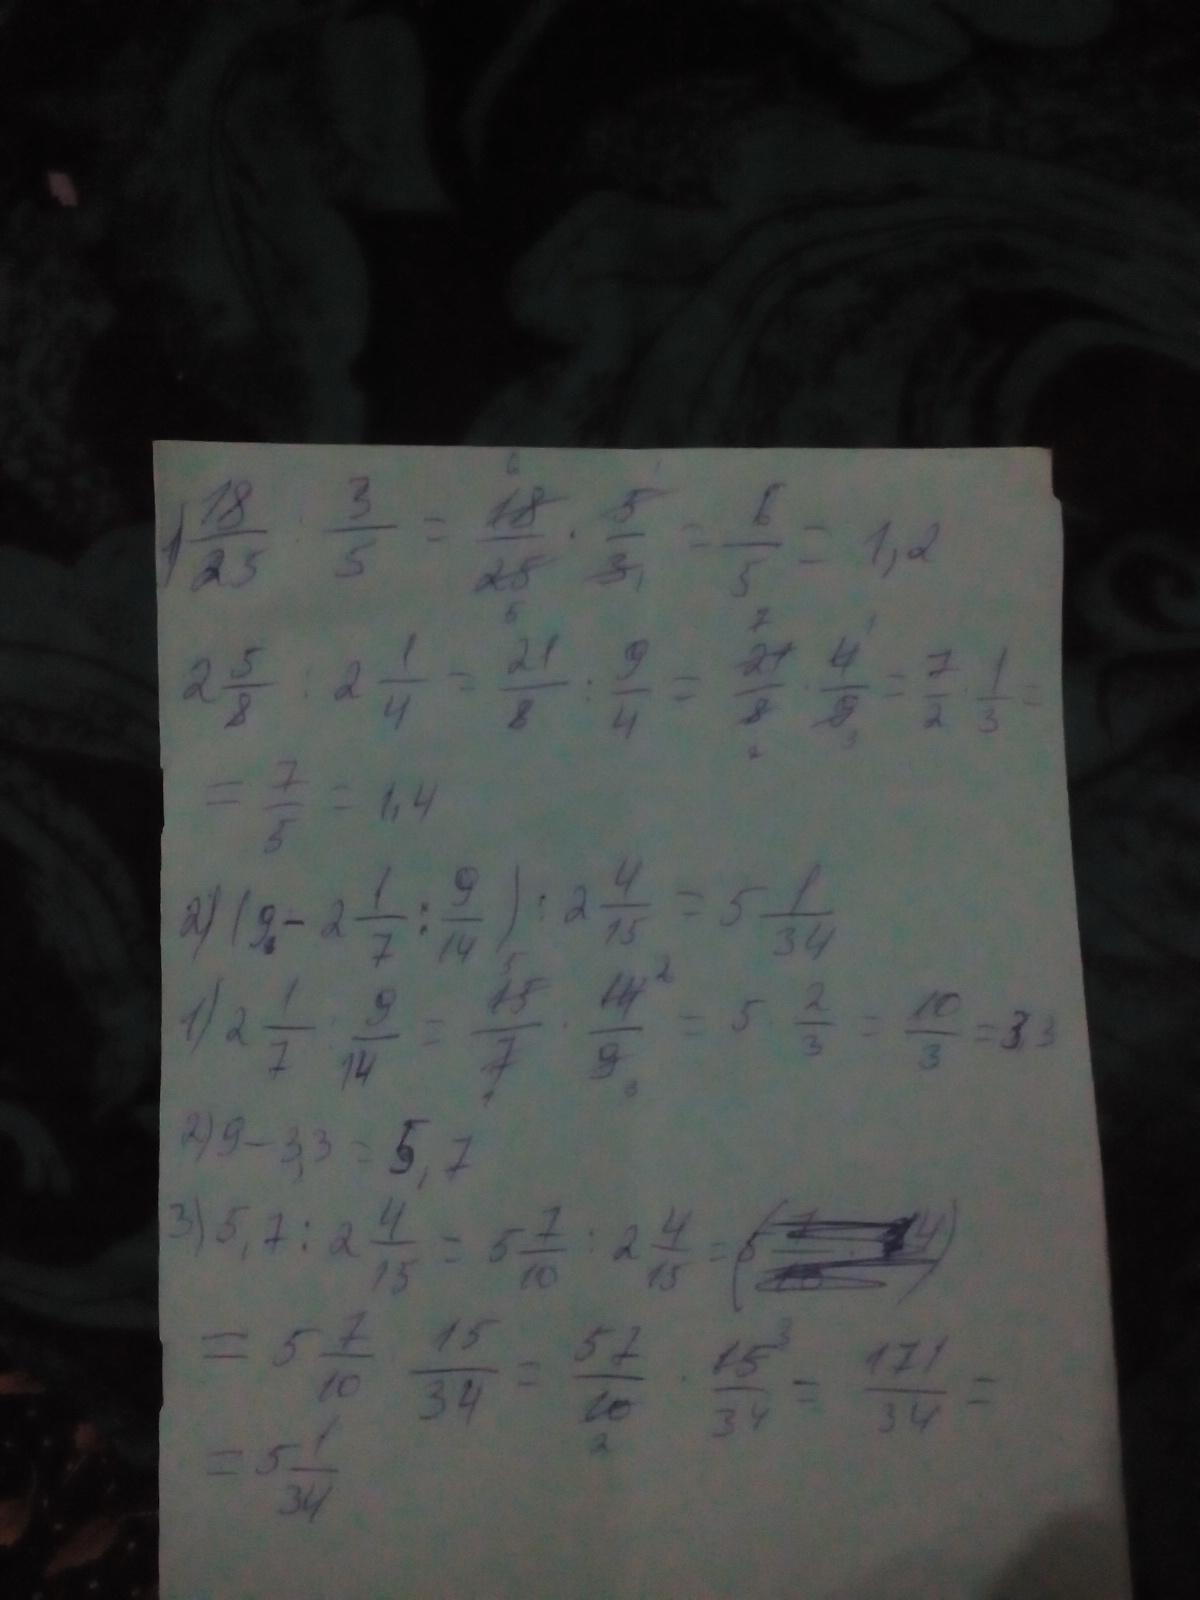 1) 18/25 : 3/5 = 18/25 · 5/3 = 6/5 = 1,2
2 5/8 : 2 1/4 = 21/8 : 9/4 = 21/8 · 4/9 = 7/2 · 1/3 =
= 7/5 = 1,4
2) (9 - 2 1/7 : 9/14) : 2 4/15 = 5 1/34
1) 2 1/7 : 9/14 = 15/7 · 14/9 = 5 · 2/3 = 10/3 = 3 3
2) 9 - 3,3 = 5,7
3) 5,7 : 2 4/15 = 5 7/10 : 2 4/15 =
= 5 7/10 15/34 = 57/10 · 15/34 = 171/34 =
= 5 1/34